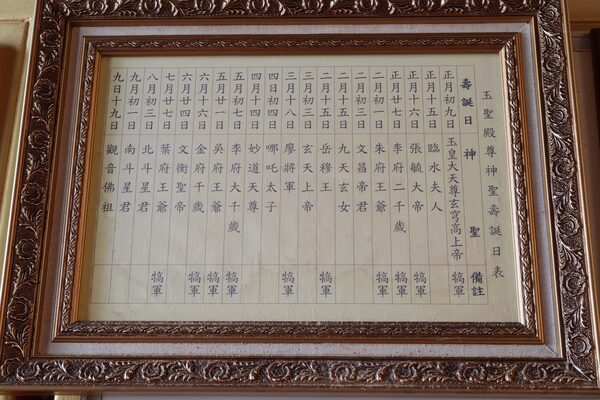 玉聖殿尊神聖壽誕日表
壽誕日 神聖 備註
正月初九日 玉皇大天尊玄穹高上帝 犒軍
正月十五日 臨水夫人
正月十六日 張毓大帝 犒軍
正月廿七日 李府二千歲 犒軍
二月初一日 朱府王爺 犒軍
二月初三日 文昌帝君
二月十五日 九天玄女
二月十五日 岳穆王 犒軍
三月初三日 玄天上帝
三月十八日 廖將軍 犒軍
四月初四日 哪吒太子
四月十四日 妙道天尊
五月初七日 李府大千歲 犒軍
五月廿一日 吳府王爺 犒軍
六月十六日 金府千歲 犒軍
六月廿四日 文衡聖帝 犒軍
七月廿七日 葉府王爺
八月初三日 北斗星君 犒軍
九月初一日 南斗星君
九日十九日 觀音佛祖